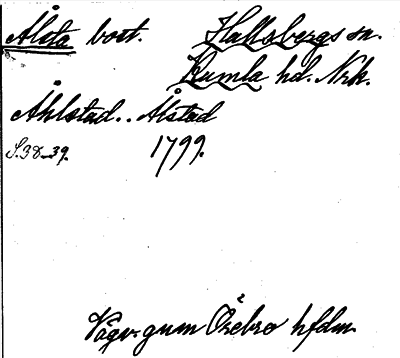 Ålsta bost. Hallsbergs sn.
Kumla hd. Nrk.
Åhlstad.. Ålstad
S. 38-39. 1799.
Vägv. gm Örebro hfdm.